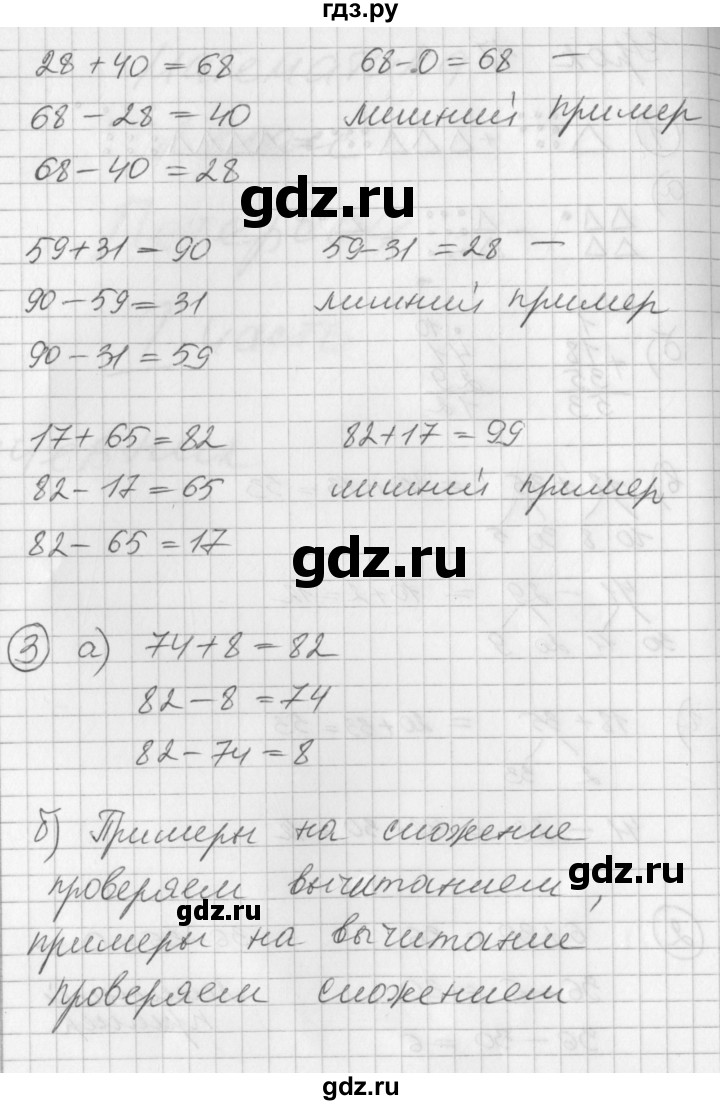 гдз.ру
28 + 40 = 68 68 - 0 = 68 —
68 - 28 = 40 лишний пример
68 - 40 = 28
gdz.ru
59 + 31 = 90 59 - 31 = 28 —
90 - 59 = 31 лишний пример
90 - 31 = 59
17 + 65 = 82 82 + 17 = 99
82 - 17 = 65 лишний пример
82 - 65 = 17
gdz.ru
3 а) 74 + 8 = 82
82 - 8 = 74
82 - 74 = 8
б) Примеры на сложение
проверяем вычитанием,
gdz.ru
gdz.ru
примеры на вычитание
проверяем сложением
gdz.ru